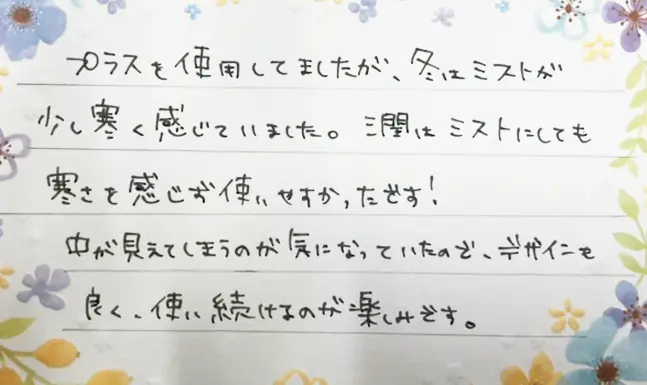 プラスを使用してましたが、冬はミストが
少し寒く感じていました。潤はミストにしても
寒さを感じず使いやすかったです!
中が見えてしまうのが気になっていたので、デザインも
良く、使い続けるのが楽しみです。